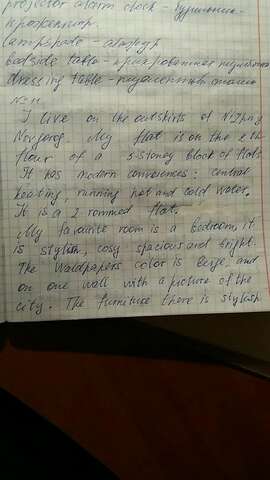 projector alarm clock - будильник-
lampshade - абажур
bedside table - прикроватная тумбочка
dressing table - туалетный столик
№11.
I live on the outskirts of Nizhny
Novgorod. My flat is on the
flour of a 5-storey block of flats
It has modern conviences: central
heating, running hot and cold water.
It is a 2 roomed flat.
My favourite room is a bedroom, it
is stylish, cosy spacious and bright.
The Wallpapers color is beige, and
on one wall with a picture of the
city. The furniture there is stylish